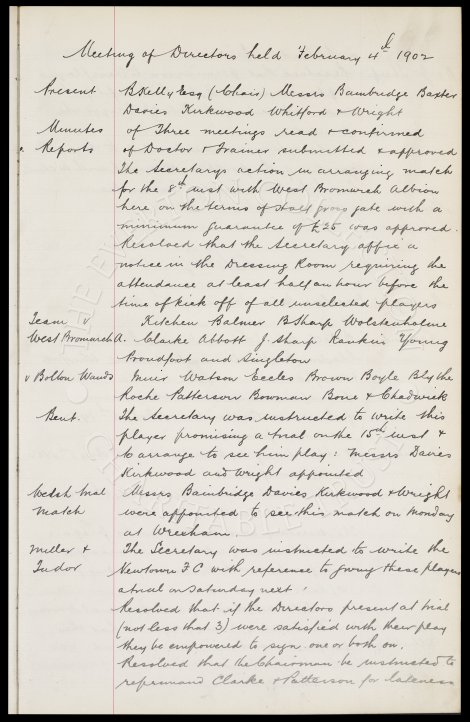 Meeting of Directors held February 4th 1902
Present B Kelly Esq (Chair) Messrs Bainbridge Baxter
Davies Kirkwood Whitford & Wright
Minutes of Three meetings read & confirmed
Reports of Doctor & Trainer submitted & approved
The Secretarys action in arranging match
for the 8th inst with West Bromwich Albion
here on the terms of Half gross gate with a
minimum guarantee of £25 was approved.
Resolved that the Secretary affix a
notice in the Dressing Room requiring the
attendance at least half an hour before the
time of kick off of all unselected players
Team v Kitchen Balmer B Sharp Wolstenholme
West Bromwich A. Clarke Abbott J. Sharp Rankin Young
Proudfoot and Singleton
v Bolton Wands Muir Watson Eccles Brown Boyle Blythe
Roche Patterson Bowman Bone & Chadwick
Bent. The Secretary was instructed to write this
player promising a trial on the 15th inst &
to arrange to see him play: Messrs Davies
Kirkwood and Wright appointed
Welsh Trial Messrs Bainbridge Davies Kirkwood & Wright
Match were appointed to see this match on Monday
at Wrexham.
Miller & The Secretary was instructed to write the
Tudor Newtown F C with reference to giving these players
a trial on Saturday next.
Resolved that if the Directors present at trial
(not less that 3) were satisfied with their play
they be empowered to sign one or both on.
Resolved that the Chairman be instructed to
reprimand Clarke & Patterson for lateness